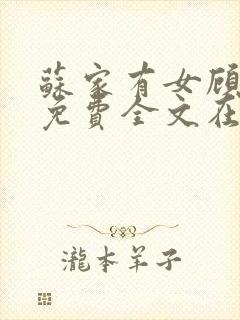 蘇家有女顧
免費全文在
瀧本羊子